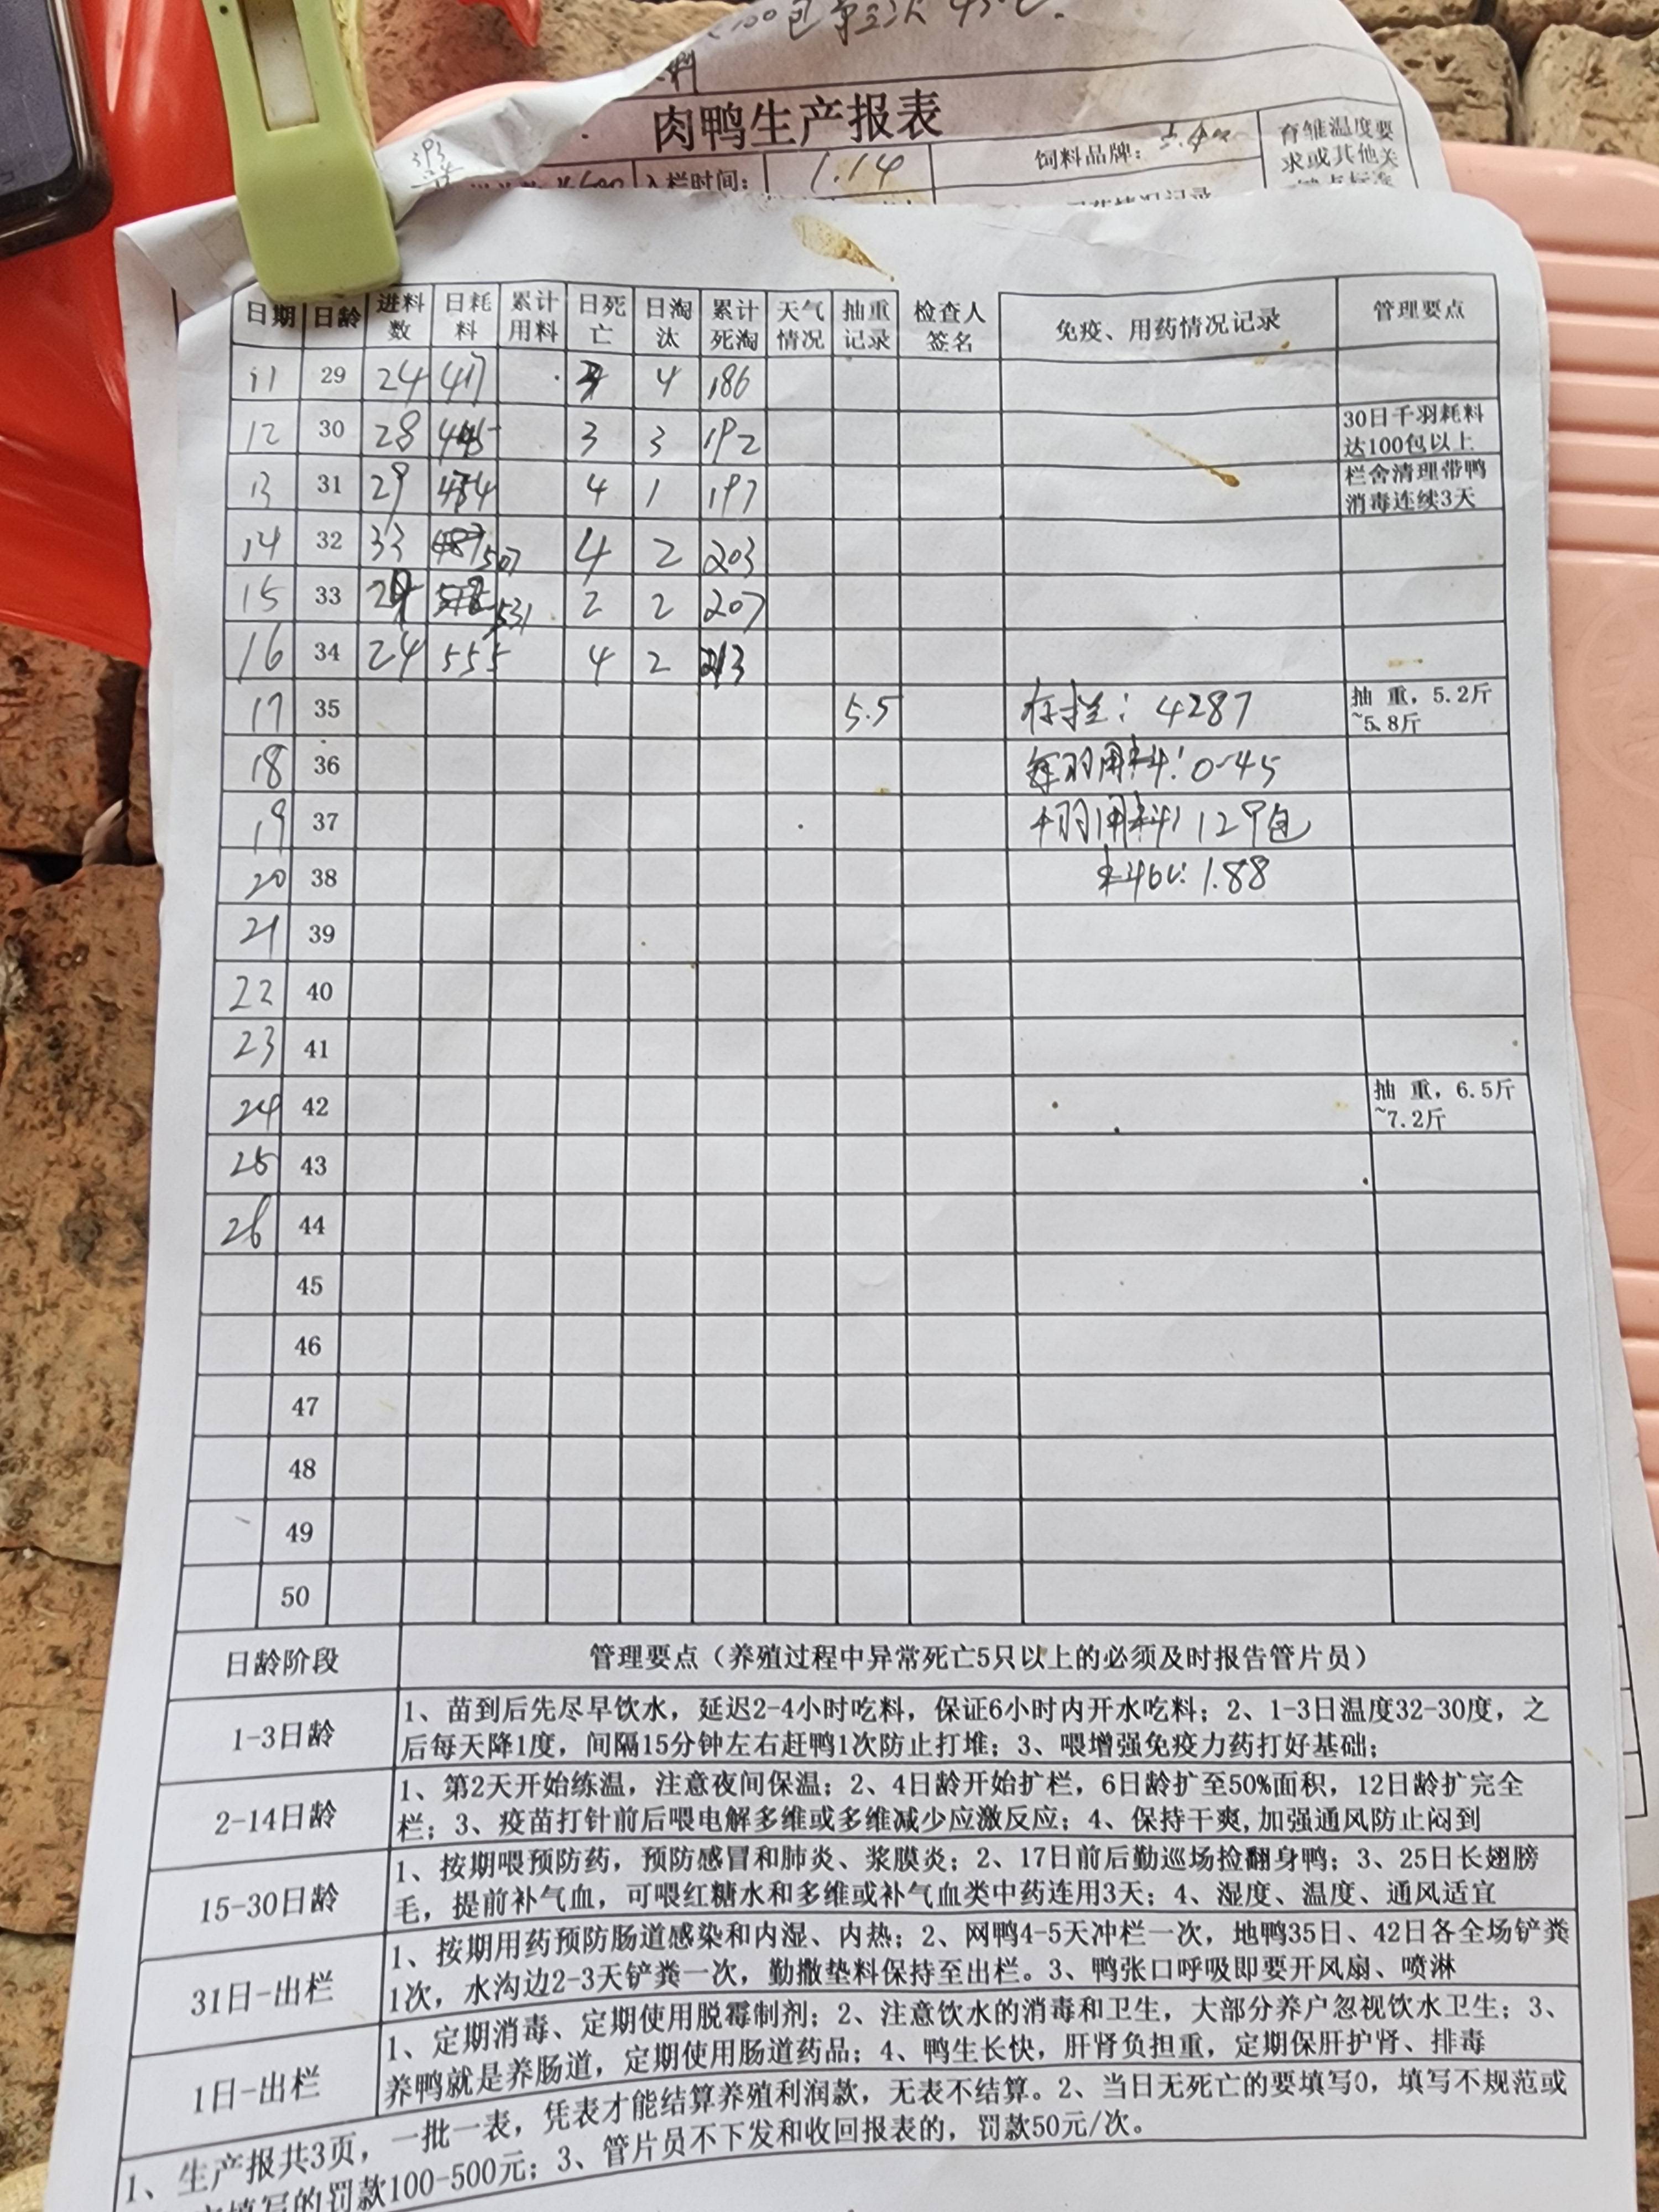 100包
料
肉鸭生产报表
入栏时间： 1.14 饲料品牌：
育雏温度要
求或其他关
日期 日龄 进料数 日耗料 累计用料 日死亡 日淘汰 累计死淘 天气情况 抽重记录 检查人签名 免疫、用药情况记录 管理要点
11 29 24 417 4 186
12 30 28 445 3 3 192 30日千羽耗料达100包以上
13 31 29 474 4 1 197 栏舍清理带鸭消毒连续3天
14 32 33 507 4 2 203
15 33 24 531 2 2 207
16 34 24 555 4 2 213
17 35 5.5 存栏：4287 抽 重，5.2斤~5.8斤
18 36 每羽用料：0-45
19 37 千羽用料：129包
20 38 1.88
21 39
22 40
23 41
24 42 抽 重，6.5斤~7.2斤
25 43
26 44
45
46
47
48
49
50
日龄阶段 管理要点（养殖过程中异常死亡5只以上的必须及时报告管片员）
1-3日龄 1、苗到后先尽早饮水，延迟2-4小时吃料，保证6小时内开水吃料；2、1-3日温度32-30度，之
后每天降1度，间隔15分钟左右赶鸭1次防止打堆；3、喂增强免疫力药打好基础；
2-14日龄 1、第2天开始练温，注意夜间保温；2、4日龄开始扩栏，6日龄扩至50%面积，12日龄扩完全
栏；3、疫苗打针前后喂电解多维或多维减少应激反应；4、保持干爽,加强通风防止闷到
15-30日龄 1、按期喂预防药，预防感冒和肺炎、浆膜炎；2、17日前后勤巡场捡翻身鸭；3、25日长翅膀
毛，提前补气血，可喂红糖水和多维或补气血类中药连用3天；4、湿度、温度、通风适宜
31日-出栏 1、按期用药预防肠道感染和内湿、内热；2、网鸭4-5天冲栏一次，地鸭35日、42日各全场铲粪
1次，水沟边2-3天铲粪一次，勤撒垫料保持至出栏。3、鸭张口呼吸即要开风扇、喷淋
1日-出栏 1、定期消毒、定期使用脱霉制剂；2、注意饮水的消毒和卫生，大部分养户忽视饮水卫生；3、
养鸭就是养肠道，定期使用肠道药品；4、鸭生长快，肝肾负担重，定期保肝护肾、排毒
1、生产报共3页，一批一表，凭表才能结算养殖利润款，无表不结算。2、当日无死亡的要填写0，填写不规范或
填写的罚款100-500元；3、管片员不下发和收回报表的，罚款50元/次。